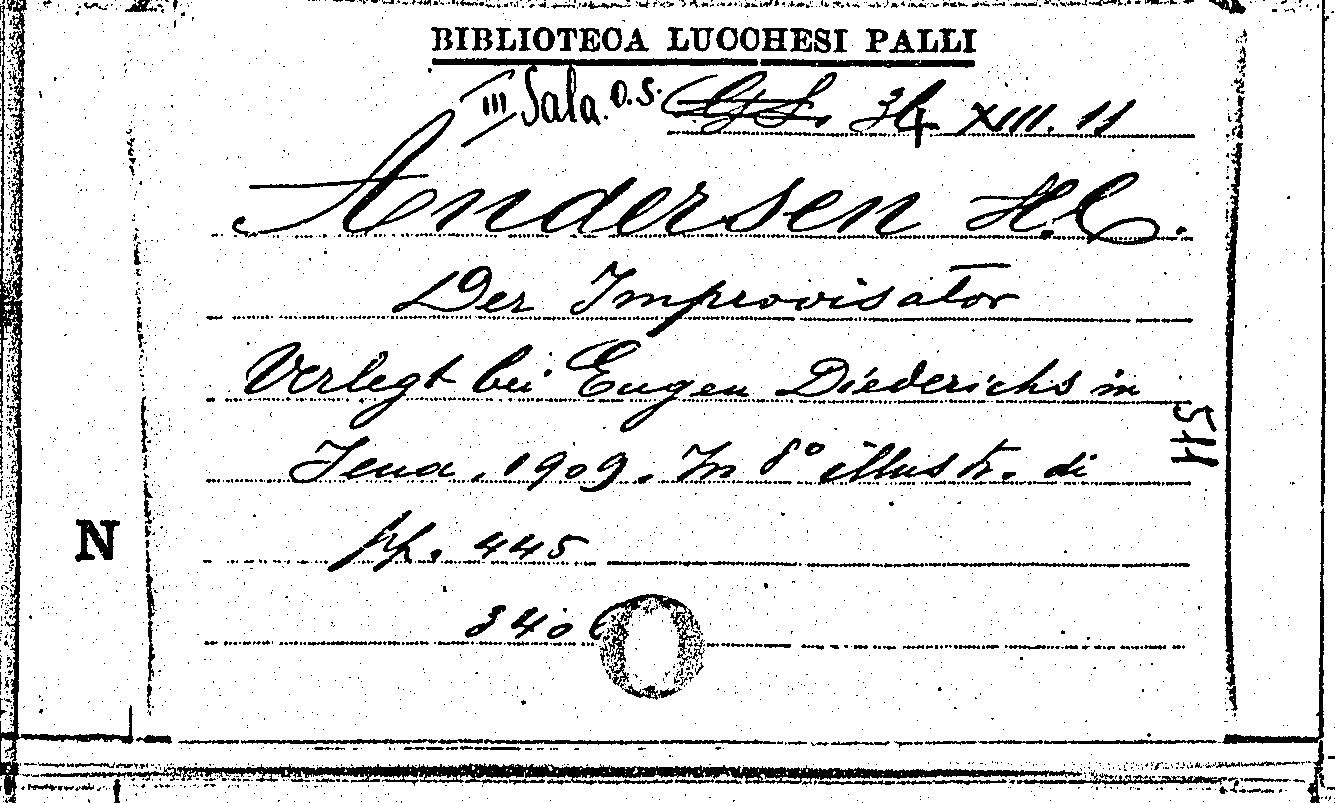 BIBLIOTECA LUCCHESI PALLI
III Sala. O.S. 34 XIII. 11
Andersen H.C.
Der Improvisator
Verlegt bei Eugen Diederichs in
Jena, 1909. In 8° illustr. di
pp. 445
N
511